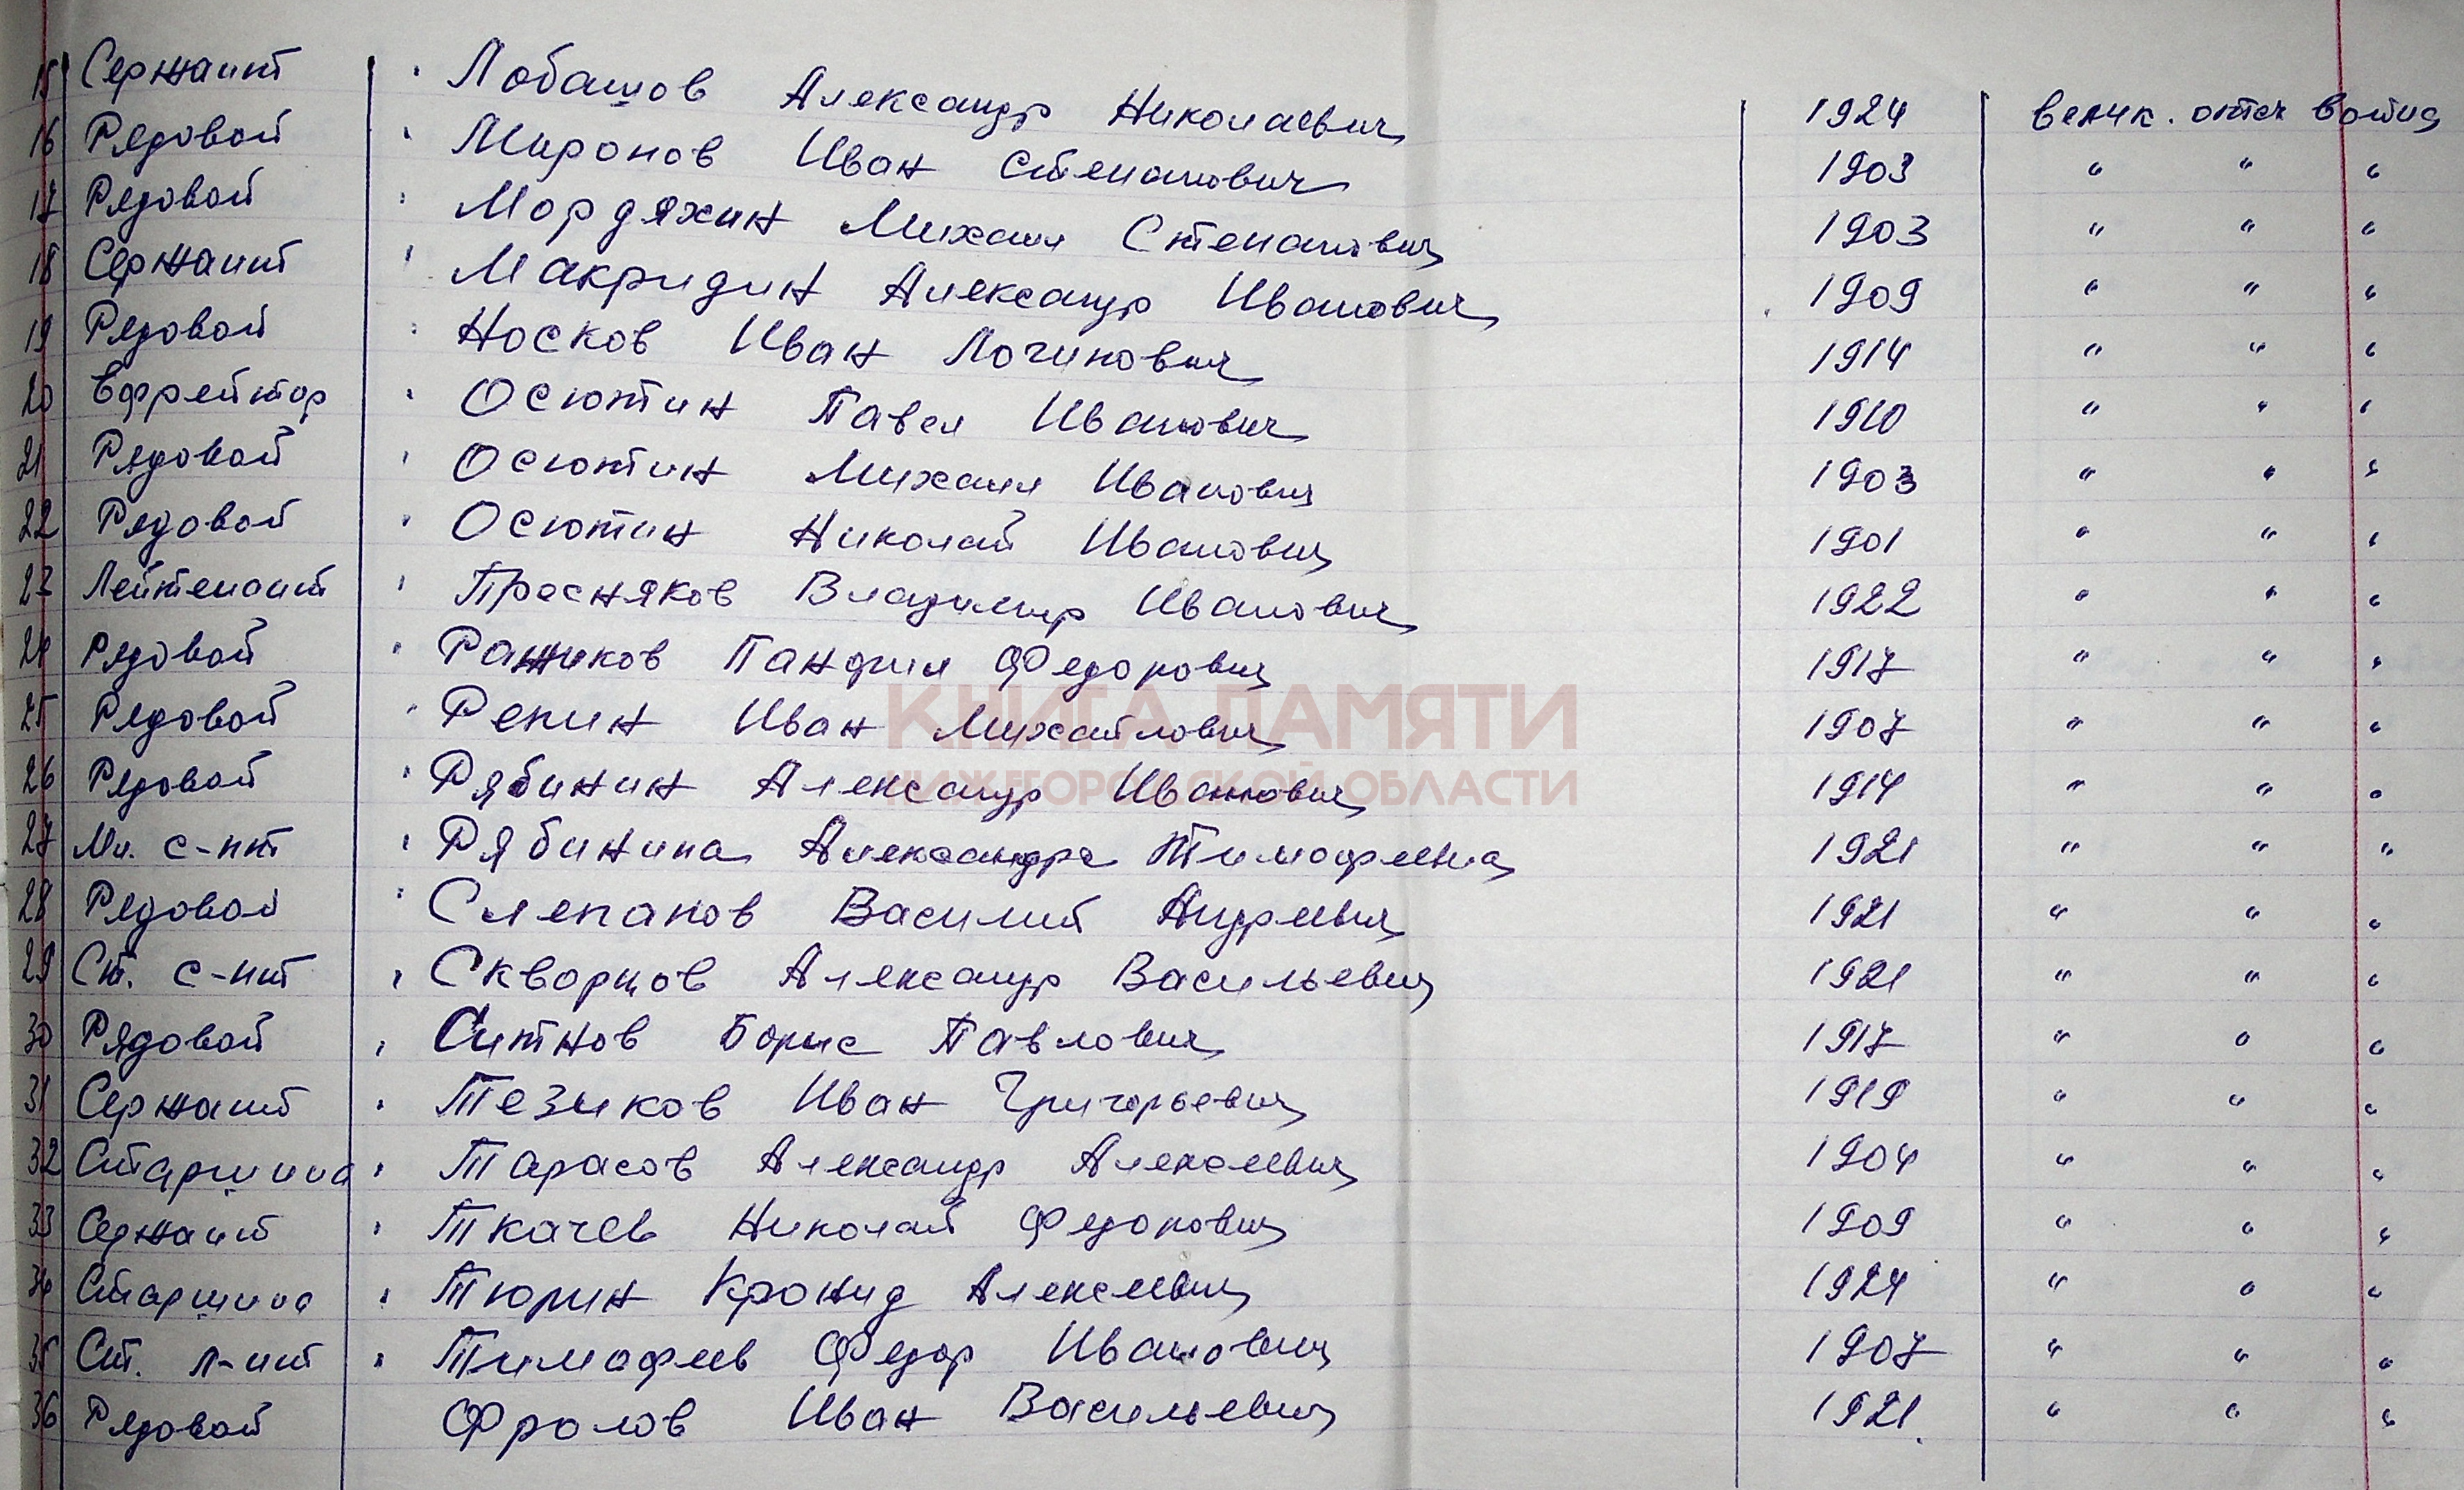 15 Сержант Лобашов Александр Николаевич 1924 велик. отеч война
16 Рядовой Миронов Иван Степанович 1903 " " "
17 Рядовой Мордяхин Михаил Степанович 1903 " " "
18 Сержант Макридин Александр Иванович 1909 " " "
19 Рядовой Носков Иван Логинович 1914 " " "
20 Ефрейтор Осютин Павел Иванович 1910 " " "
21 Рядовой Осютин Михаил Иванович 1903 " " "
22 Рядовой Осютин Николай Иванович 1901 " " "
23 Лейтенант Пресняков Владимир Иванович 1922 " " "
24 Рядовой Ражиков Панфил Федорович 1917 " " "
25 Рядовой Репин Иван Михайлович 1907 " " "
КНИГА ПАМЯТИ
26 Рядовой Рябинин Александр Иванович 1914 " " "
НИЖЕГОРОДСКОЙ ОБЛАСТИ
27 Мл. с-нт Рябинина Александра Тимофеевна 1921 " " "
28 Рядовой Слепанов Василий Андреевич 1921 " " "
29 Ст. с-нт Скворцов Александр Васильевич 1921 " " "
30 Рядовой Ситнов Борис Павлович 1917 " " "
31 Сержант Тезиков Иван Григорьевич 1919 " " "
32 Старшина Тарасов Александр Алексеевич 1904 " " "
33 Сержант Ткачев Николай Федорович 1909 " " "
34 Старшина Тюрин Кронид Алексеевич 1924 " " "
35 Ст. л-нт Тимофеев Федор Иванович 1907 " " "
36 Рядовой Фролов Иван Васильевич 1921. " " "